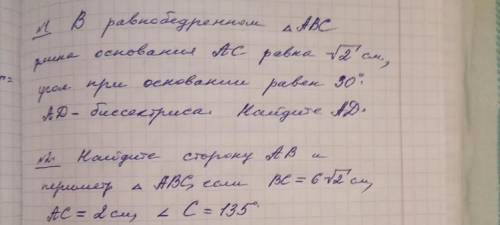 №1 В равнобедренном △ABC
длина основания AC равна √2 см,
угол при основании равен 30°.
AD - биссектриса. Найдите AD.
№2. Найдите сторону AB и
периметр △ ABC, если BC = 6√2 см,
AC = 2 см, ∠ C = 135°